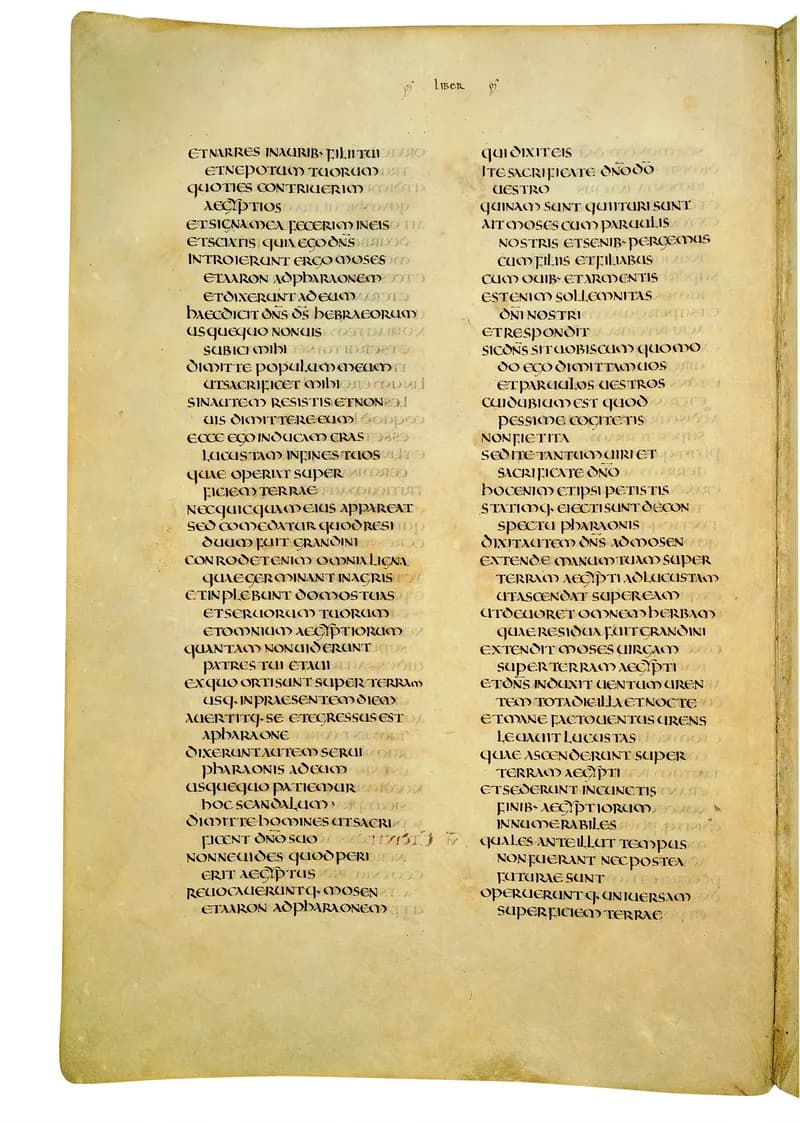 LIBER
ETNARRES INAURIB· FILIITUI
ETNEPOTUM TUORUM
QUOTIES CONTRIUERIM
AEGYPTIOS
ETSIGNAMEA FECERIM INEIS
ETSCIATIS QUIA EGO DN̄S
INTROIERUNT ERGO MOSES
ETAARON ADPHARAONEM
ETDIXERUNT ADEUM
HAECDICIT DN̄S D̄S HEBRAEORUM
USQUEQUO NONUIS
SUBICI MIHI
DIMITTE POPULUM MEUM
UTSACRIFICET MIHI
SINAUTEM RESISTIS ETNON
UIS DIMITTERE EUM
ECCE EGO INDUCAM CRAS
LUCUSTAM INFINES TUOS
QUAE OPERIAT SUPER
FICIEM TERRAE
NECQUICQUAM EIUS APPAREAT
SED COMEDATUR QUOD RESI
DUUM FUIT GRANDINI
CONRODET ENIM OMNIA LIGNA
QUAE GERMINANT INAGRIS
ETINPLEBUNT DOMOS TUAS
ETSERUORUM TUORUM
ETOMNIUM AEGYPTIORUM
QUANTAM NONUIDERUNT
PATRES TUI ETAUI
EXQUO ORTI SUNT SUPER TERRAM
USQ· INPRAESENTEM DIEM
AUERTITQ· SE ETEGRESSUS EST
APHARAONE
DIXERUNT AUTEM SERUI
PHARAONIS ADEUM
USQUEQUO PATIEMUR
HOC SCANDALUM
DIMITTE HOMINES UTSACRI
FICENT DN̄O SUO
NONNEUIDES QUOD PERI
ERIT AEGYPTUS
REUOCAUERUNTQ· MOSEN
ETAARON ADPHARAONEM
QUI DIXIT EIS
ITE SACRIFICATE DN̄O D̄O
UESTRO
QUINAM SUNT QUI ITURI SUNT
AIT MOSES CUM PARUULIS
NOSTRIS ETSENIB· PERGEMUS
CUM FILIIS ETFILIABUS
CUM OUIB· ETARMENTIS
EST ENIM SOLLEMNITAS
DN̄I NOSTRI
ETRESPONDIT
SIC DN̄S SIT UOBISCUM QUOMO
DO EGO DIMITTAM UOS
ETPARUULOS UESTROS
CUI DUBIUM EST QUOD
PESSIME COGITETIS
NONFIET ITA
SED ITE TANTUM UIRI ET
SACRIFICATE DN̄O
HOC ENIM ETIPSI PETISTIS
STATIMQ· EIECTI SUNT DECON
SPECTU PHARAONIS
DIXIT AUTEM DN̄S ADMOSEN
EXTENDE MANUM TUAM SUPER
TERRAM AEGYPTI ADLUCUSTAM
UTASCENDAT SUPER EAM
UTDEUORET OMNEM HERBAM
QUAE RESIDUA FUIT GRANDINI
EXTENDIT MOSES UIRGAM
SUPER TERRAM AEGYPTI
ETDN̄S INDUXIT UENTUM UREN
TEM TOTA DIE ILLA ETNOCTE
ETMANE FACTO UENTUS URENS
LEUAUIT LUCUSTAS
QUAE ASCENDERUNT SUPER
TERRAM AEGYPTI
ETSEDERUNT INCUNCTIS
FINIB· AEGYPTIORUM
INNUMERABILES
QUALES ANTE ILLUT TEMPUS
NON FUERANT NEC POSTEA
FUTURAE SUNT
OPERUERUNTQ· UNIUERSAM
SUPERFICIEM TERRAE